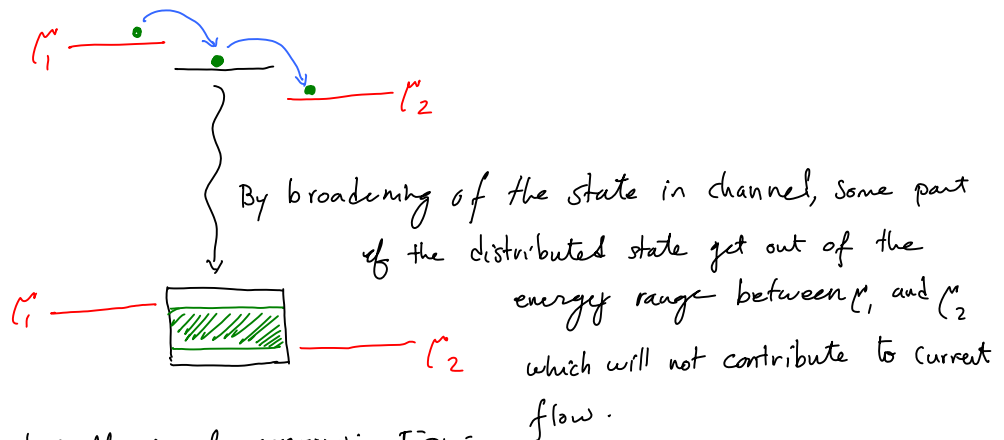 μ1
μ2
By broadening of the state in channel, some part
of the distributed state get out of the
energy range between μ1 and μ2
μ1
μ2
which will not contribute to current
flow.